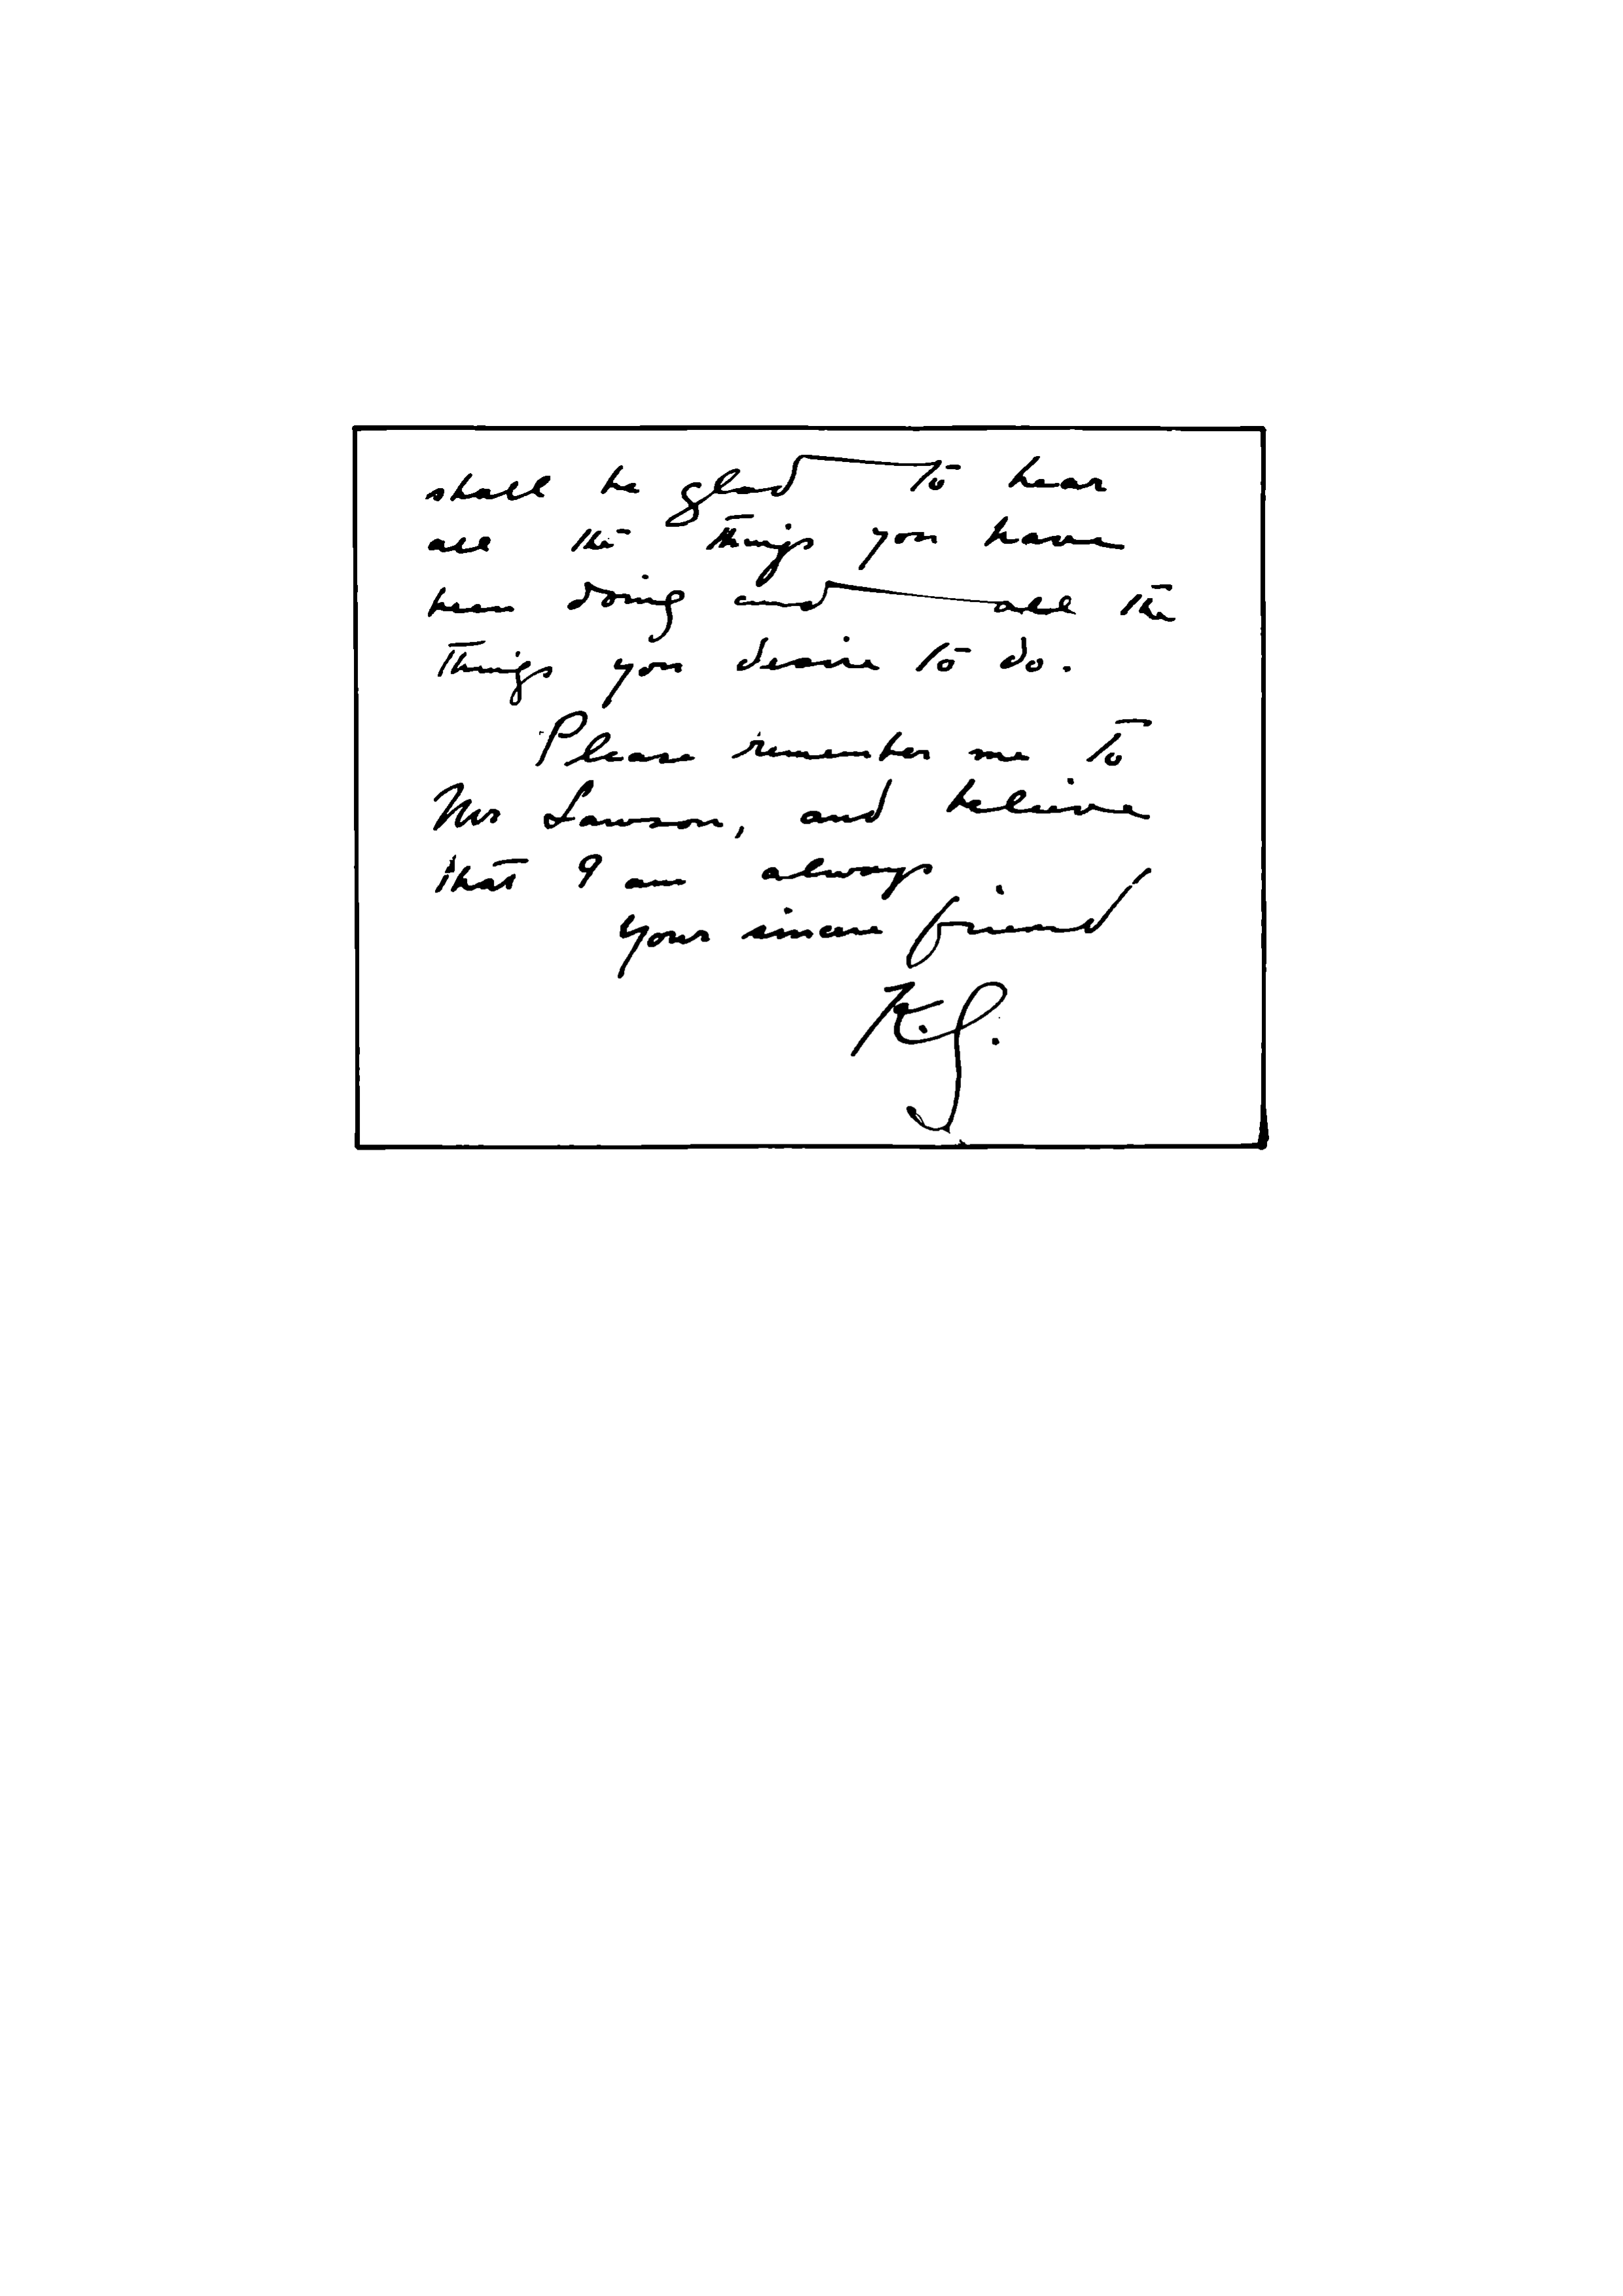 shall be glad to hear
all the things you have
been doing and all the
things you desire to do.
Please remember me to
Mrs Lawson, and believe
that I am always
your sincere friend
K.G.